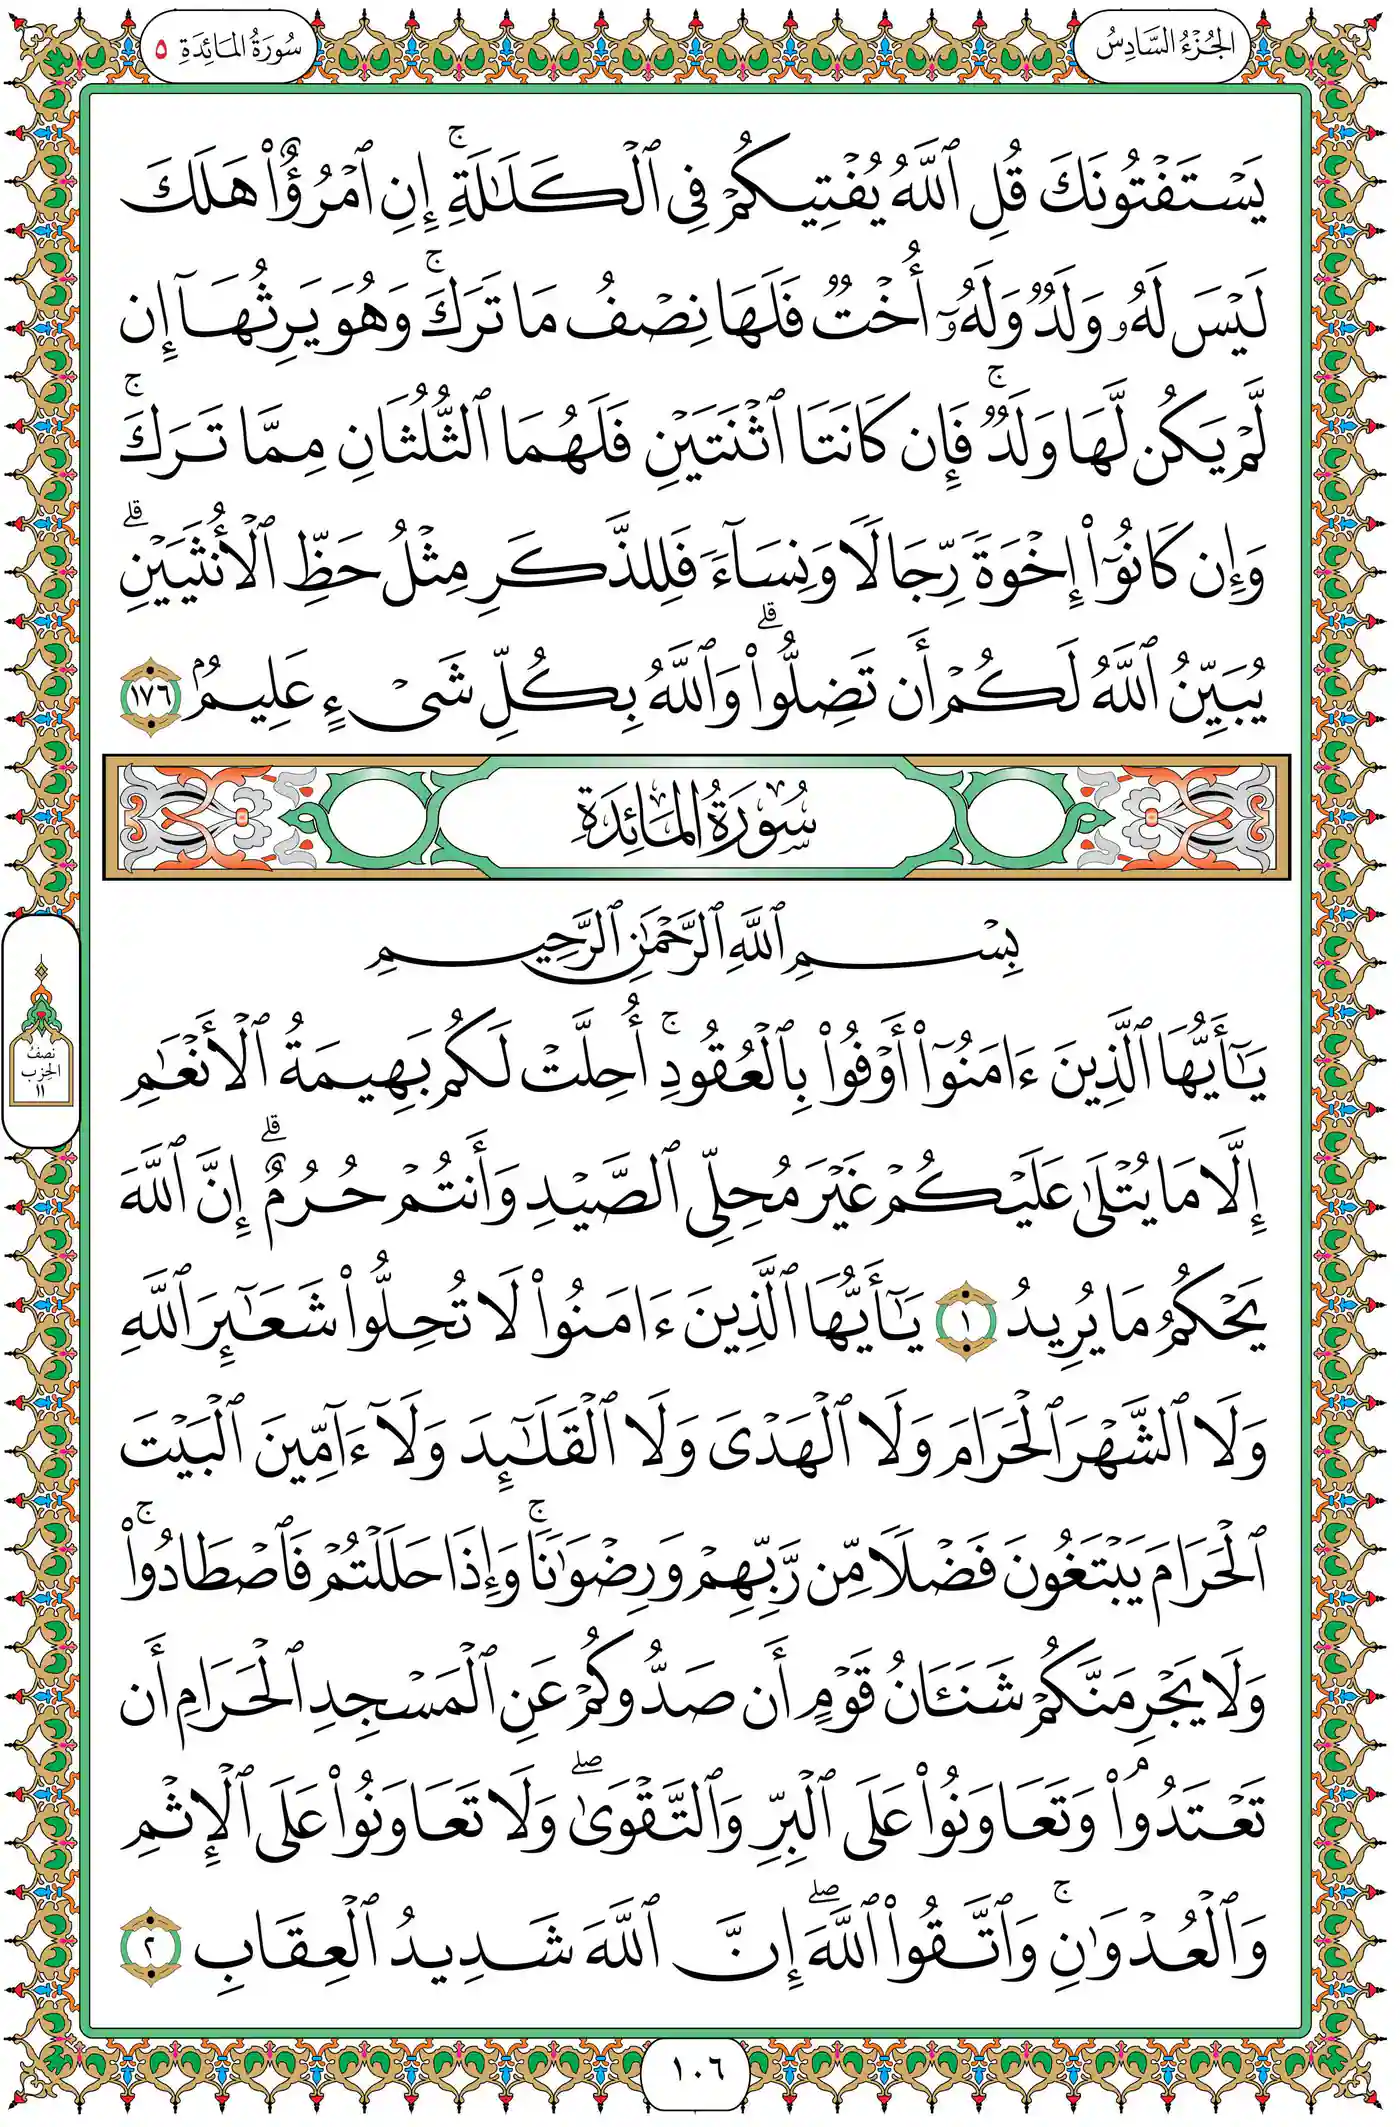 الجُزْءُ السَّادِسُ
سُورَةُ المَائِدَةِ ٥
يَسْتَفْتُونَكَ قُلِ ٱللَّهُ يُفْتِيكُمْ فِى ٱلْكَلَٰلَةِ ۚ إِنِ ٱمْرُؤٌا۟ هَلَكَ
لَيْسَ لَهُۥ وَلَدٌ وَلَهُۥٓ أُخْتٌ فَلَهَا نِصْفُ مَا تَرَكَ ۚ وَهُوَ يَرِثُهَآ إِن
لَّمْ يَكُن لَّهَا وَلَدٌ ۚ فَإِن كَانَتَا ٱثْنَتَيْنِ فَلَهُمَا ٱلثُّلُثَانِ مِمَّا تَرَكَ ۚ
وَإِن كَانُوٓا۟ إِخْوَةً رِّجَالًا وَنِسَآءً فَلِلذَّكَرِ مِثْلُ حَظِّ ٱلْأُنثَيَيْنِ ۗ
يُبَيِّنُ ٱللَّهُ لَكُمْ أَن تَضِلُّوا۟ ۗ وَٱللَّهُ بِكُلِّ شَىْءٍ عَلِيمٌۢ ١٧٦
سُورَةُ المَائِدَةِ
بِسْمِ ٱللَّهِ ٱلرَّحْمَٰنِ ٱلرَّحِيمِ
يَٰٓأَيُّهَا ٱلَّذِينَ ءَامَنُوٓا۟ أَوْفُوا۟ بِٱلْعُقُودِ ۚ أُحِلَّتْ لَكُم بَهِيمَةُ ٱلْأَنْعَٰمِ
إِلَّا مَا يُتْلَىٰ عَلَيْكُمْ غَيْرَ مُحِلِّى ٱلصَّيْدِ وَأَنتُمْ حُرُمٌ ۗ إِنَّ ٱللَّهَ
يَحْكُمُ مَا يُرِيدُ ١ يَٰٓأَيُّهَا ٱلَّذِينَ ءَامَنُوا۟ لَا تُحِلُّوا۟ شَعَٰٓئِرَ ٱللَّهِ
وَلَا ٱلشَّهْرَ ٱلْحَرَامَ وَلَا ٱلْهَدْىَ وَلَا ٱلْقَلَٰٓئِدَ وَلَآ ءَآمِّينَ ٱلْبَيْتَ
ٱلْحَرَامَ يَبْتَغُونَ فَضْلًا مِّن رَّبِّهِمْ وَرِضْوَٰنًا ۚ وَإِذَا حَلَلْتُمْ فَٱصْطَادُوا۟ ۚ
وَلَا يَجْرِمَنَّكُمْ شَنَـَٔانُ قَوْمٍ أَن صَدُّوكُمْ عَنِ ٱلْمَسْجِدِ ٱلْحَرَامِ أَن
تَعْتَدُوا۟ ۘ وَتَعَاوَنُوا۟ عَلَى ٱلْبِرِّ وَٱلتَّقْوَىٰ ۖ وَلَا تَعَاوَنُوا۟ عَلَى ٱلْإِثْمِ
وَٱلْعُدْوَٰنِ ۚ وَٱتَّقُوا۟ ٱللَّهَ ۖ إِنَّ ٱللَّهَ شَدِيدُ ٱلْعِقَابِ ٢
نصفُ
الحِزب
١١
١٠٦